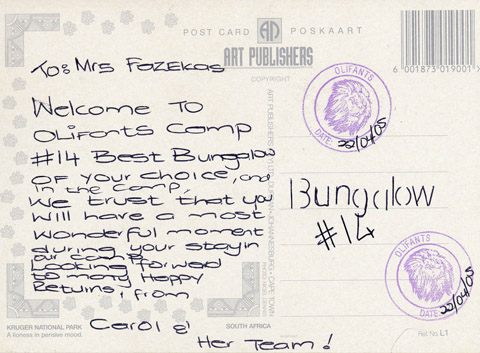 POST CARD AP POSKAART
ART PUBLISHERS
COPYRIGHT
6 001873 019001
To: Mrs Fazekas
Welcome To
Olifants Camp
#14 Best Bungalow
of your choice, and
in the camp,
We trust that you
will have a most
wonderful moment
during your stay in
our camp.
Looking forward
to many Happy
Returns, from
Carol &
Her Team!
OLIFANTS
DATE: 22/04/05
Bungalow
#14
OLIFANTS
DATE: 22/04/05
KRUGER NATIONAL PARK
A lioness in pensive mood.
SOUTH AFRICA
Ref. No. L1